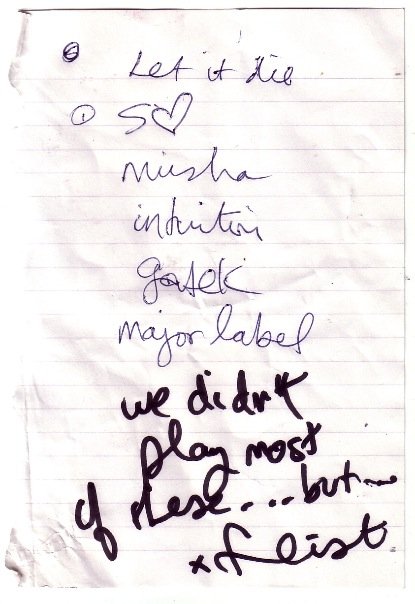 Let it die
① S♡
musha
intuition
gatek
major label
we didn't
play most
of these....but...
x feist